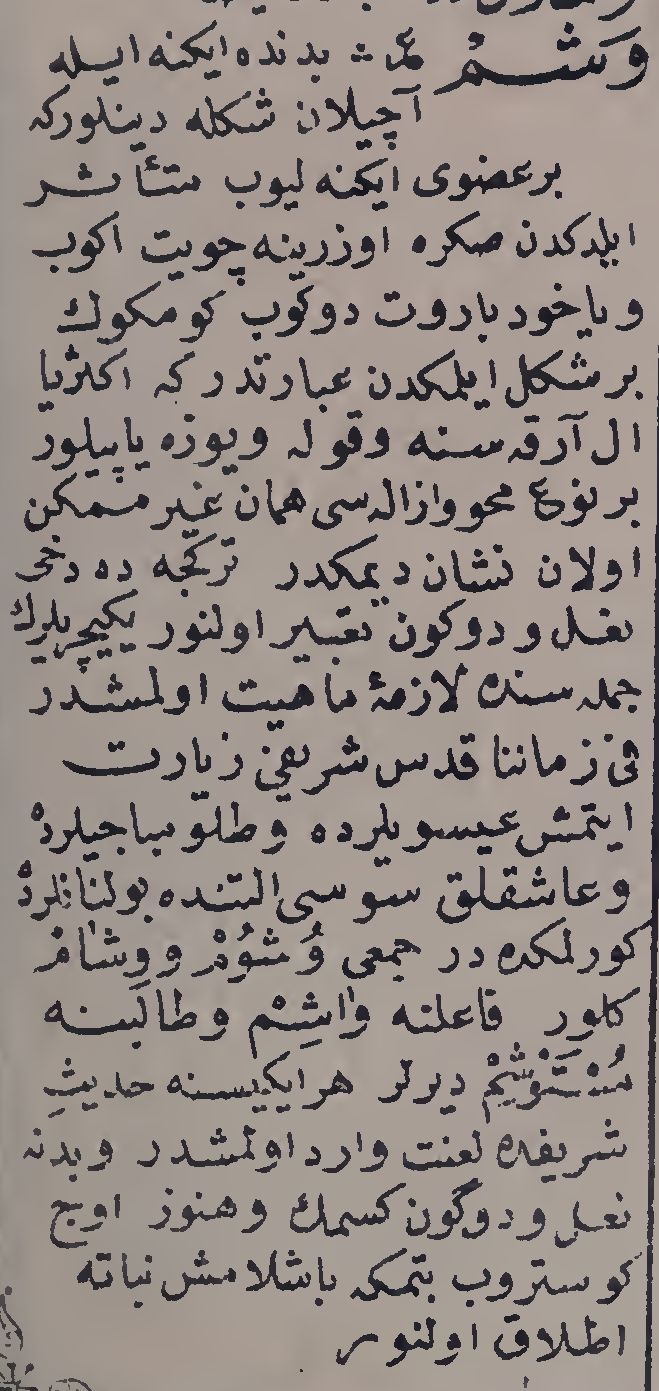 وَشْمْ عد بدنده ایکنه ایله
آچیلان شكله دینلورکه
برعضوی ایکنه لیوب متأثر
ایلدکدن صکره اوزرینه چویت اکوب
ویاخود باروت دوکوب کومکوك
برشکل ایلمکدن عبارتدرکه اکثریا
ال آرقه سنه وقوله ویوزه یاپیلور
برنوع محو وازاله سی همان غیر ممکن
اولان نشان دیمکدر ترکجه ده دخی
نعل ودوکون تعبیر اولنور یکیچریلرك
جمله سنده لازمۀ ماهیت اولمشدر
فی زماننا قدس شریفی زیارت
ایتمش عیسویلرده و
وعاشقلق سوسی التنده بولنانلرده
کورلمکده در جمعی وُشُومْ و وِشَامْ
کلور فاعلنه وَاشِمْ وطالبنه
مُسْتَوْشِمْ دیرلر هر ایکیسنه حدیث
شریفده لعنت وارد اولمشدر وبدنه
نعل ودوگون کسمك وهنوز اوج
کوستروب بتمکه باشلامش نباته
اطلاق اولنور